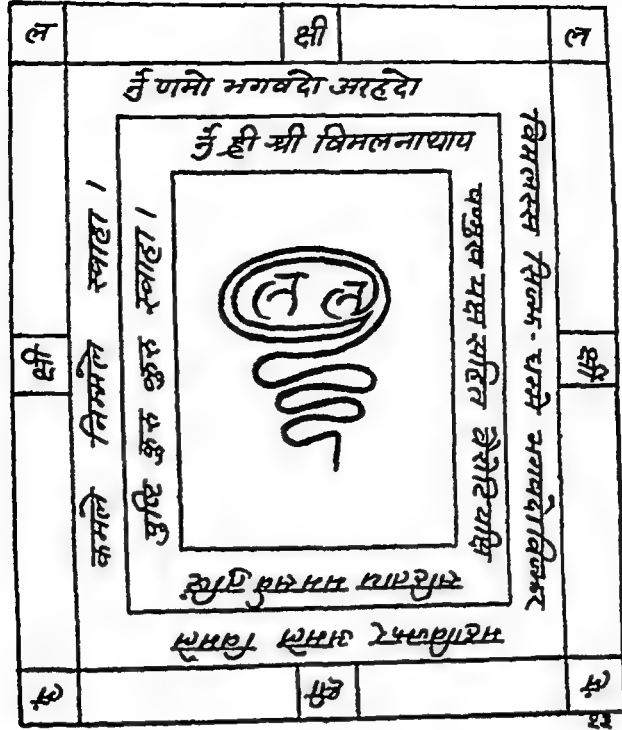 ल क्षी ल
र्नु णमो भगवदो अरहदो
विमलस्स सिज्झ-धम्मे भगवदो विज्झर
महाविज्झर अमले विमले
कमले निम्मले स्वाहा।
र्नु ह्री श्री विमलनाथाय
षण्मुख यक्ष सहित वैरोटि यक्षि
सहिताय मम सर्व तुष्टिं
पुष्टि कुरु कुरु स्वाहा।
ल ल
क्षी
क्षी
लं क्षी लं